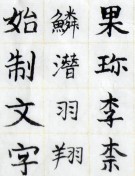 果珍李柰
鱗潛羽翔
始制文字